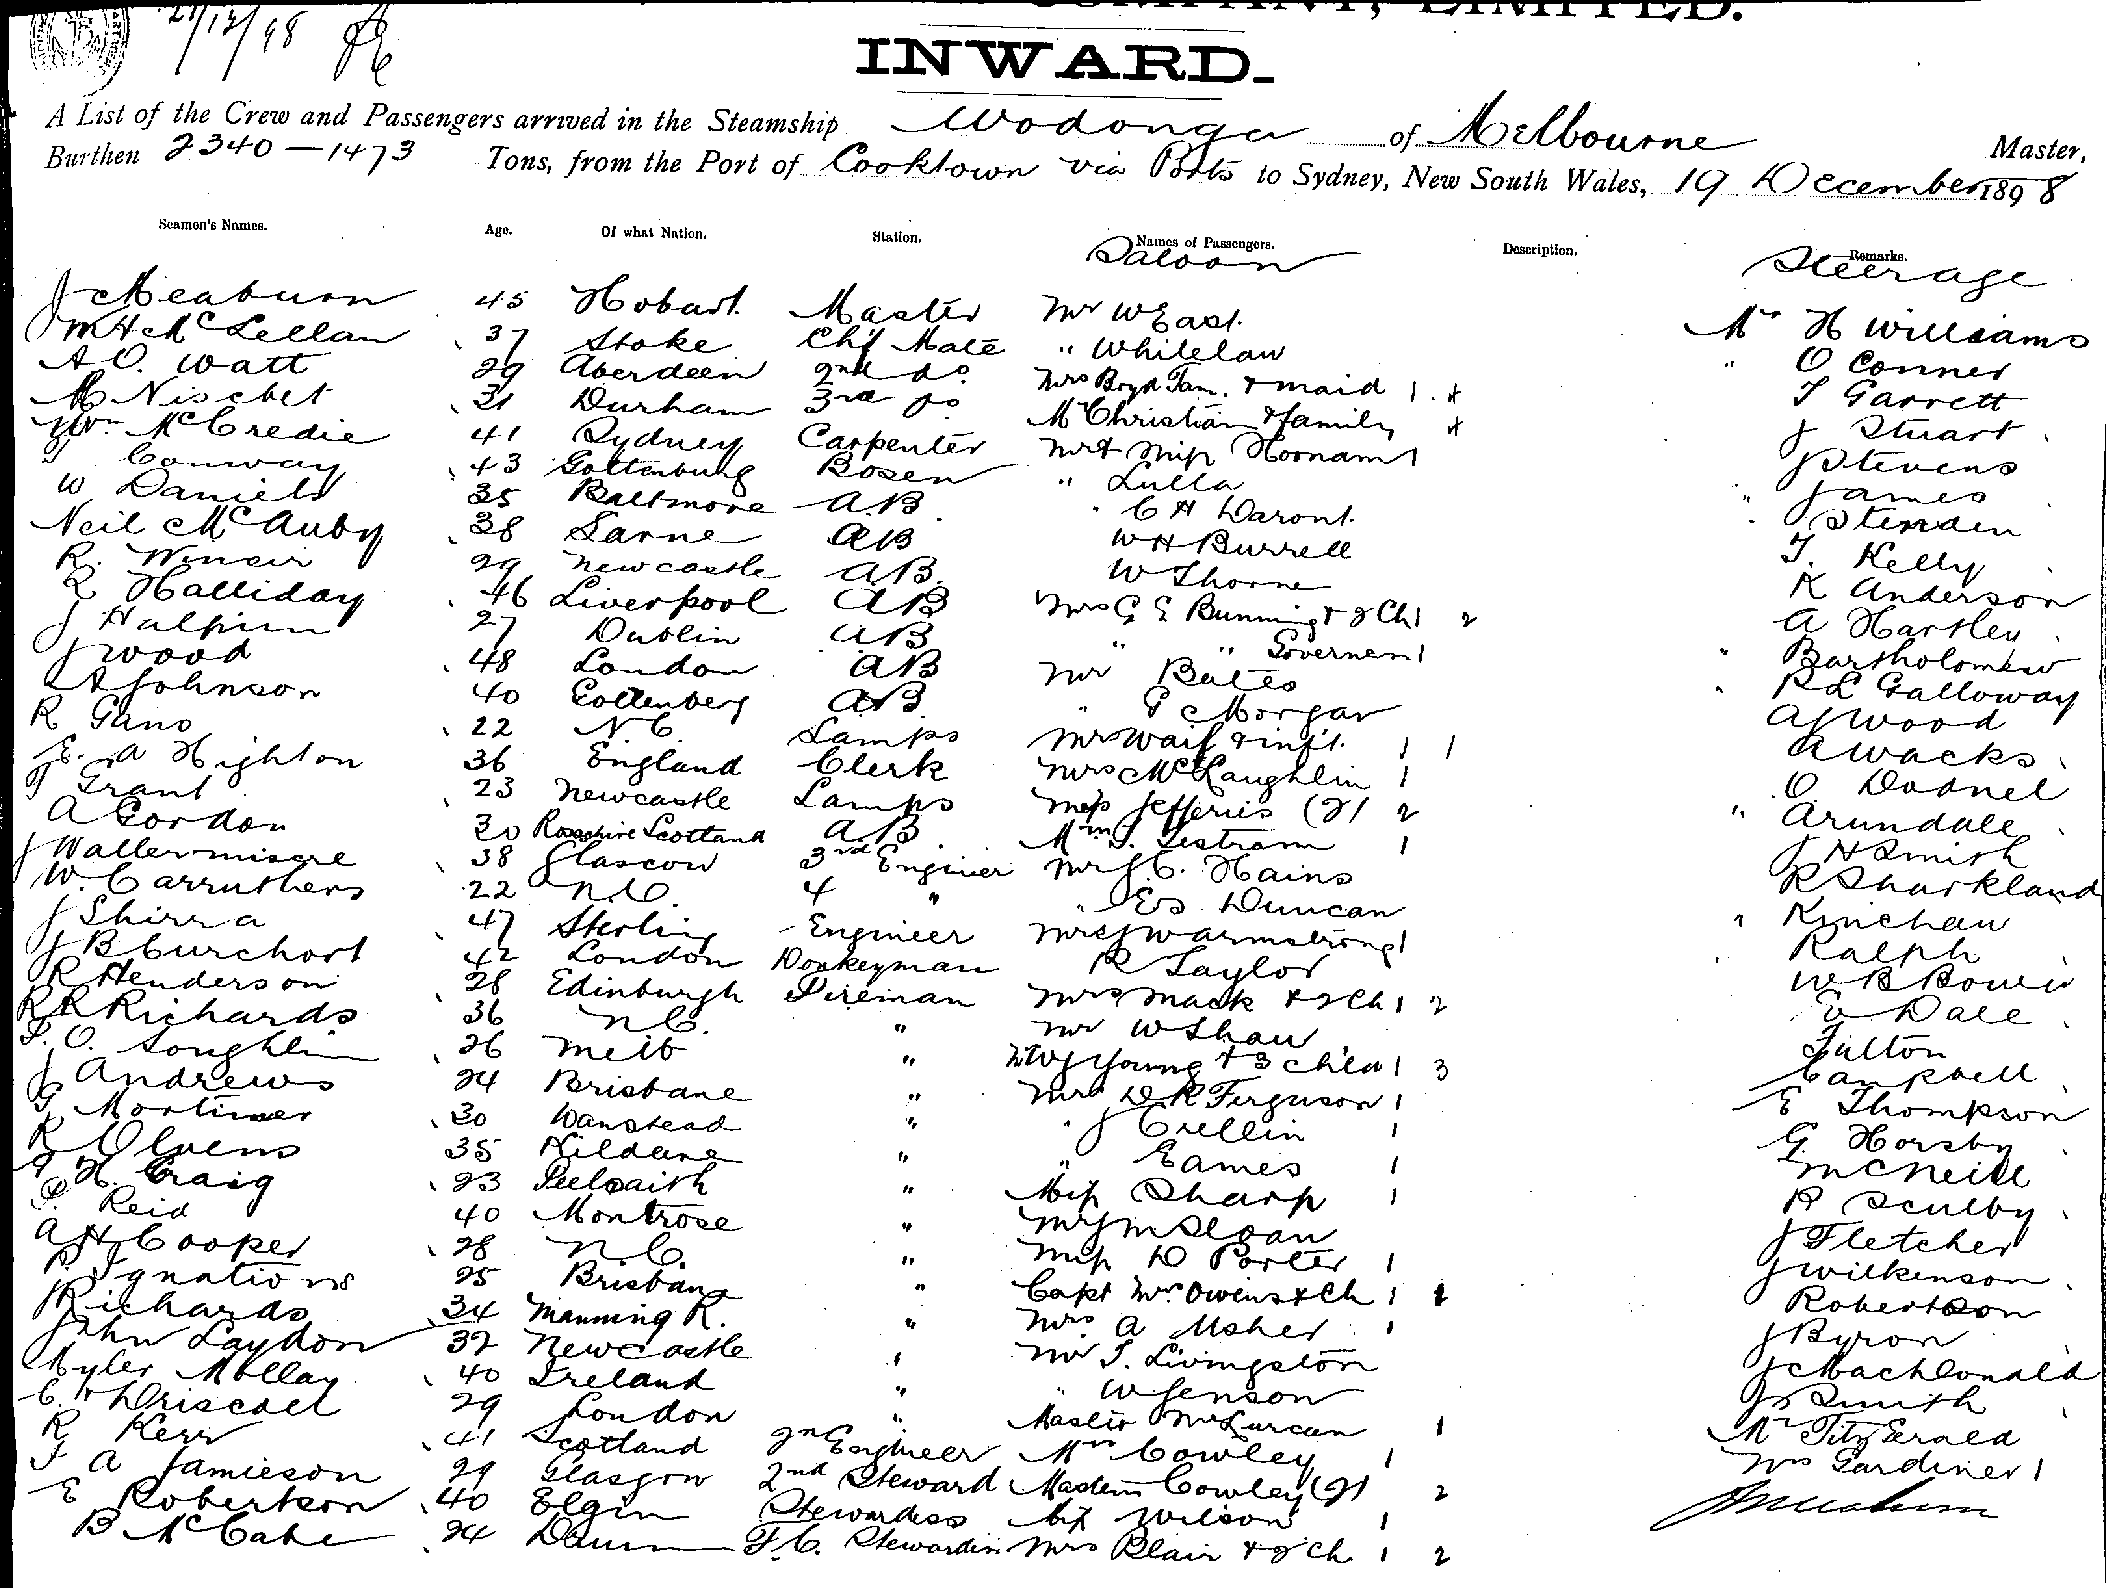 COMPANY, LIMITED.
21/12/98
INWARD.
A List of the Crew and Passengers arrived in the Steamship Wodonga of Melbourne Master,
Burthen 2340 — 1473 Tons, from the Port of Cooktown via Ports to Sydney, New South Wales, 19 December 1898
Seamen's Names. Age. Of what Nation. Station. Names of Passengers. Description. Remarks.
Saloon Steerage
J Meaburn 45 Hobart. Master Mr W East. Mr H Williams
McLellan 37 Stoke Chf Mate " Whitelaw " O Conner
A O. Watt 29 Aberdeen 2nd do Mrs Boyd Fam. & maid 1 4 T Garrett
M Nisebet 31 Durham 3rd do Mr Christian & family 4 J Stuart
Wm McCredie 41 Sydney Carpenter Mr & Miss 1 J Stevens
Conway 43 Gottenburg Bosen " Lulla " James
W Daniels 35 Baltimore A.B. " C H
Neil McAuby 38 Larne AB W H Burrell T. Kelly
R. 29 Newcastle A.B. W Thorne R Anderson
R Halliday 46 Liverpool AB Mrs G E Bunning & 2 Ch 1 2 A Hartley
J Halpin 27 Dublin AB " " Governess 1 " Bartholomew
J Wood 48 London AB Mr Bates " R L Galloway
A Johnson 40 Gottenberg AB " G Morgan A J Wood
R Gano 22 N.C. Lamps Mrs & inft. 1 1 A Wacks
E. A Highton 36 England Clerk Mrs McLaughlin 1 O Dodnel
T Grant 23 Newcastle Lamps Miss Jefferies (2) 2 " Arundale
A Gordon 30 Scotland A.B. Mrs 1 J H Smith
J 38 Glascow 3rd Enginer Mr J. C. Hains R Sharkland
W. Carruthers 22 N.C. 4 " " Duncan "
J Shirra 47 Sterling Engineer Mrs J W Armstrong 1 Ralph
J B 42 London Donkeyman R Taylor W B Bowen
R Henderson 28 Edinburgh Fireman Mrs Mack & 2 Ch 1 2 E Dale
R R Richards 36 N.C. " Mr W Shaw Fulton
Loughlin 26 Melb " Young & 3 child 1 3 Campbell
J Andrews 24 Brisbane " Mrs D R Ferguson 1 E Thompson
G Mortimer 30 Wanstead " " J Crellin 1 G. Horsby
R Olvens 35 Kildare " " Eames 1 McNeill
H. Craig 23 " Miss Sharp 1 R Sculby
Reid 40 Montrose " Mr J M Sloan J Fletcher
A H Cooper 28 N.C. " Miss D Porter 1 J Wilkinson
25 Brisbane " Capt Mrs Owens & Ch 1 1 Robertson
Richards 34 Manning R. " Mrs A Usher 1 J Byron
John Laydon 32 Newcastle " Mr T. Livingston J MacDonald
Myler Mollay 40 Ireland " " W Jenson J Smith
C. H Driscoll 29 London " Master 1 Mr Fitzgerald
R Kerr 41 Scotland 2n Engineer Mrs Cowley 1 Mrs Gardiner 1
T A Jamieson 29 Glasgow 2nd Steward Masters Cowley (2) 2
E Robertson 40 Elgin Stewardess Miss Wilson 1
B McCabe 24 F.C. Stewardess Mrs Blair & 2 Ch. 1 2